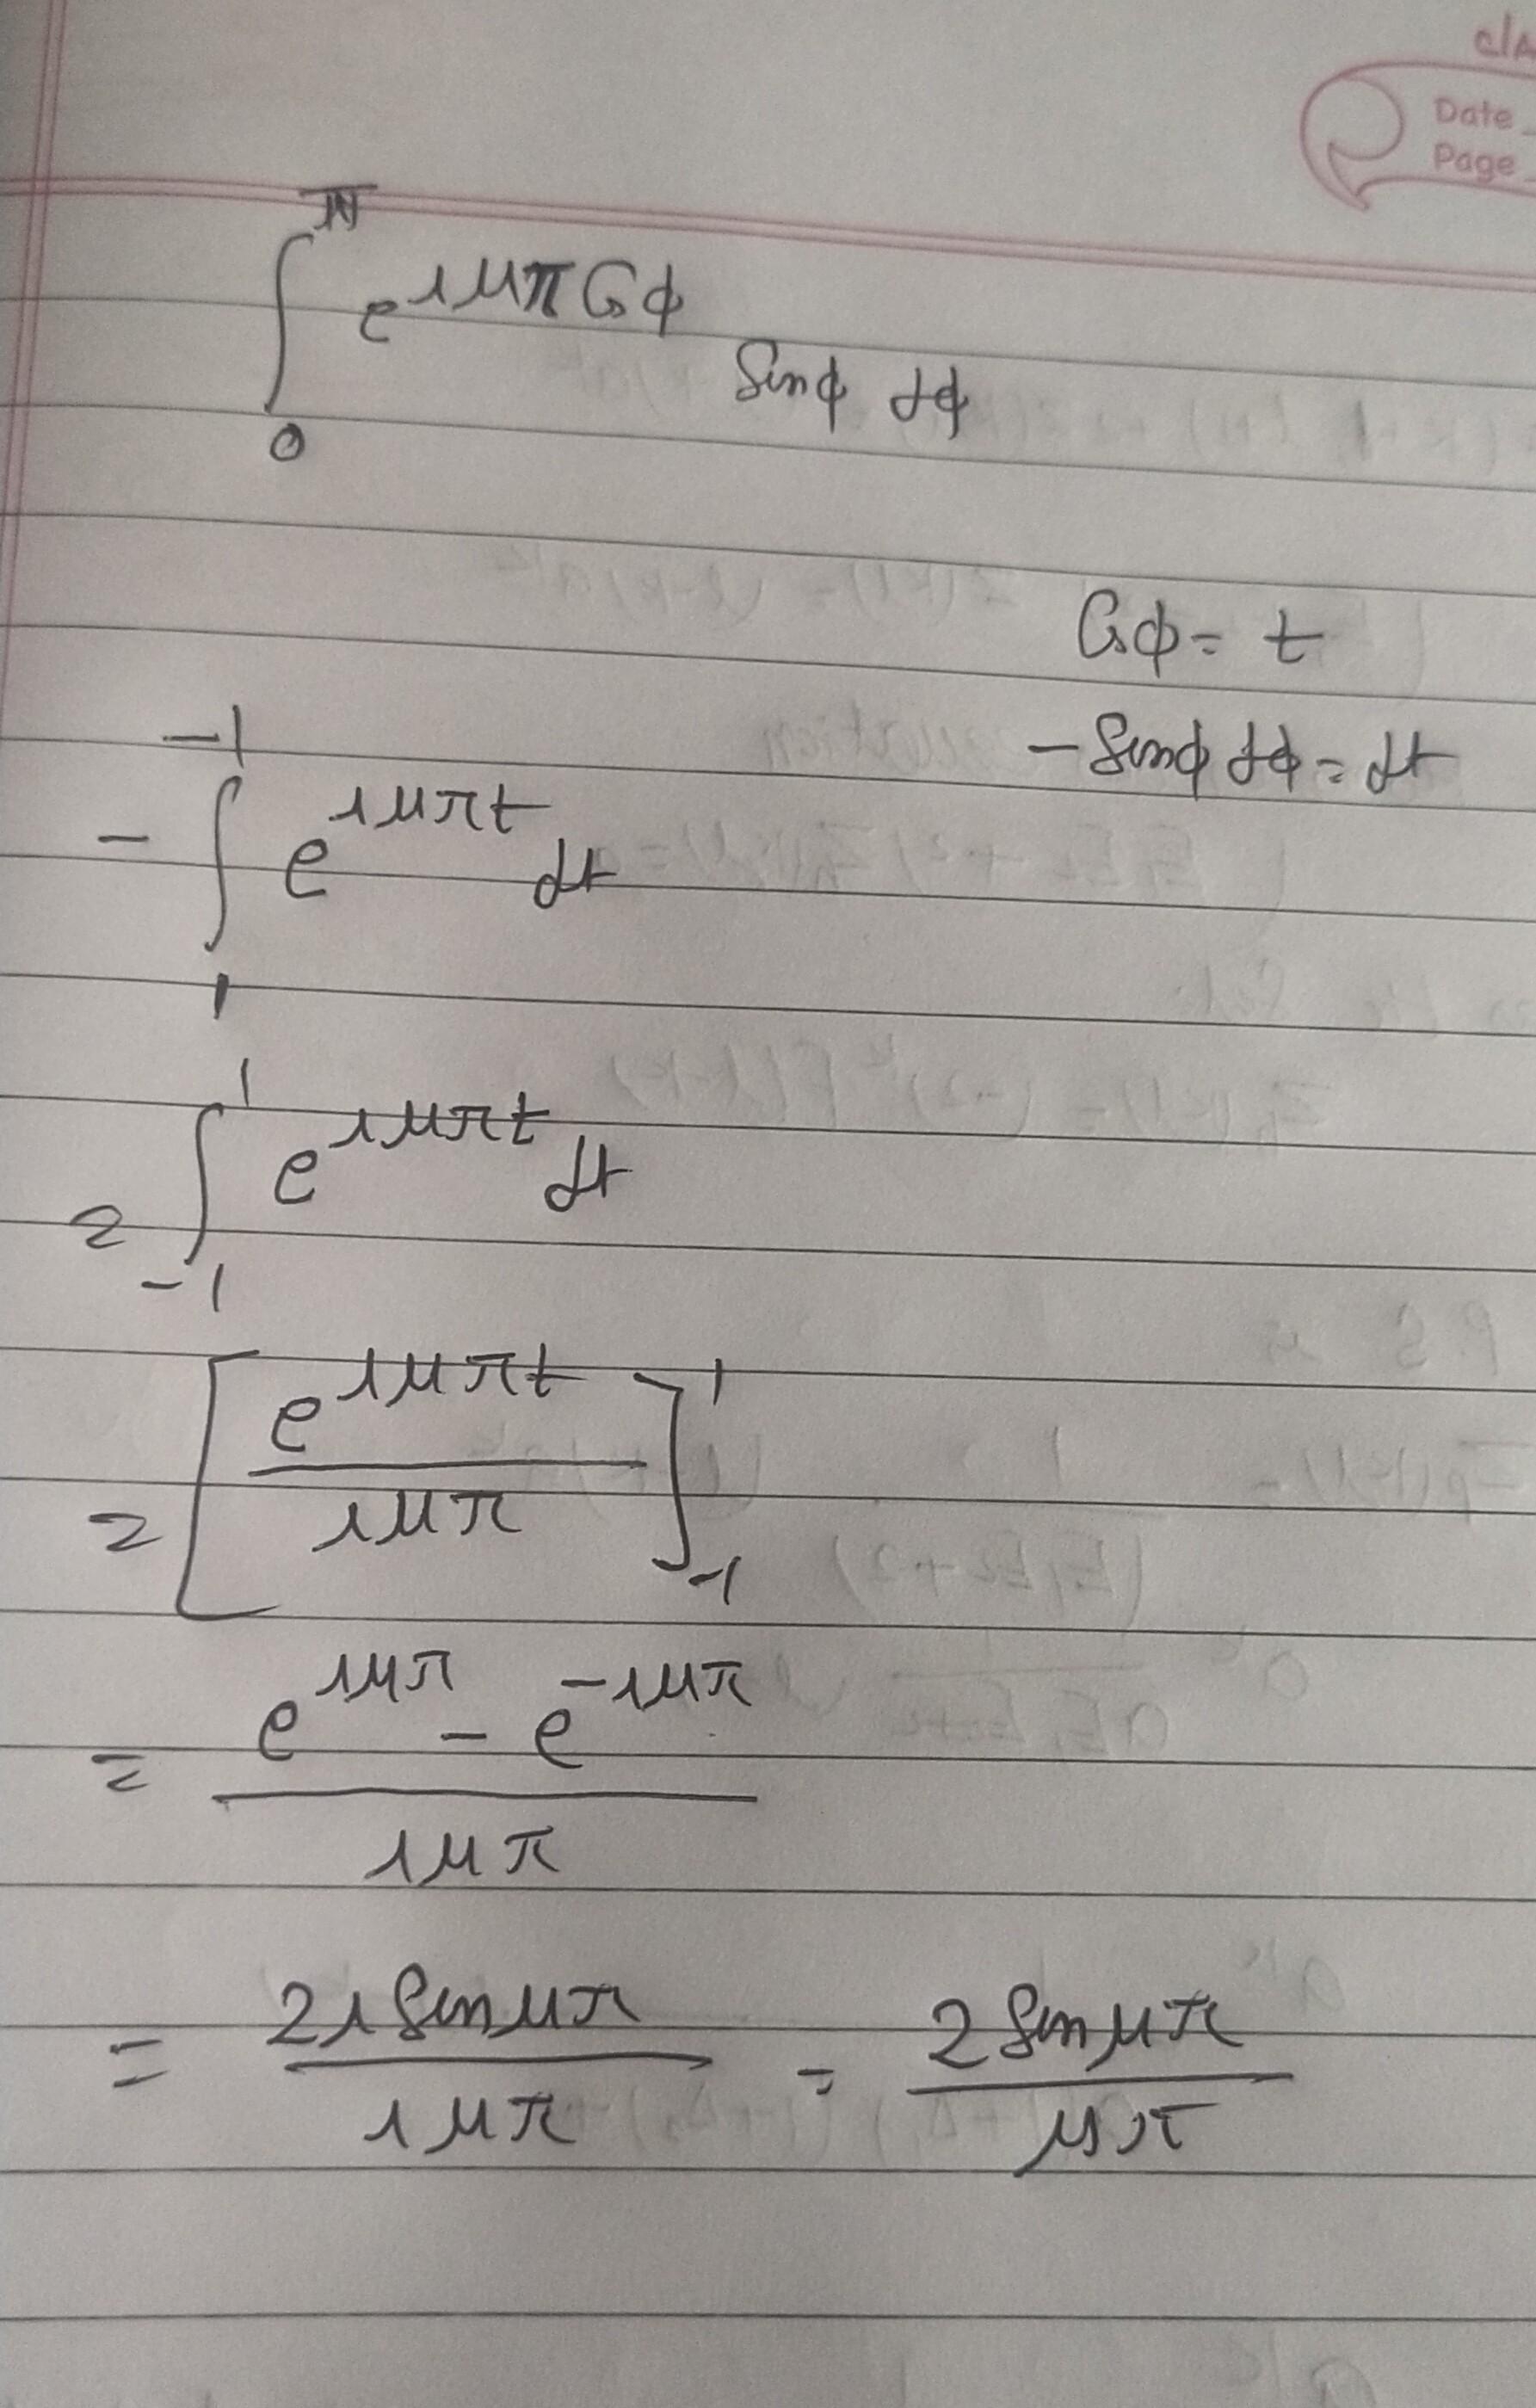 clA
Date
Page
∫₀^π e^{iμπ Cosφ} Sinφ dφ
Cosφ = t
-Sinφ dφ = dt
- ∫₁^{-1} e^{iμπt} dt
= ∫_{-1}^{1} e^{iμπt} dt
= [e^{iμπt} / iμπ]_{-1}^{1}
= (e^{iμπ} - e^{-iμπ}) / iμπ
= 2i Sinμπ / iμπ = 2 Sinμπ / μπ